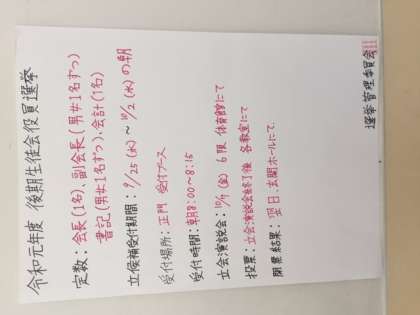 令和元年度 後期生徒会役員選挙
定数：会長(1名)、副会長(男女1名ずつ)
書記(男女1名ずつ)、会計(1名)
立候補受付期間：9/25(水)～10/2(水)の朝
受付場所：正門 受付ブース
受付時間：朝8:00～8:15
立会演説会：10/4(金) 6限 体育館にて
投票：立会演説会終了後 各教室にて
開票結果：翌日、玄関ホールにて
選挙管理委員会